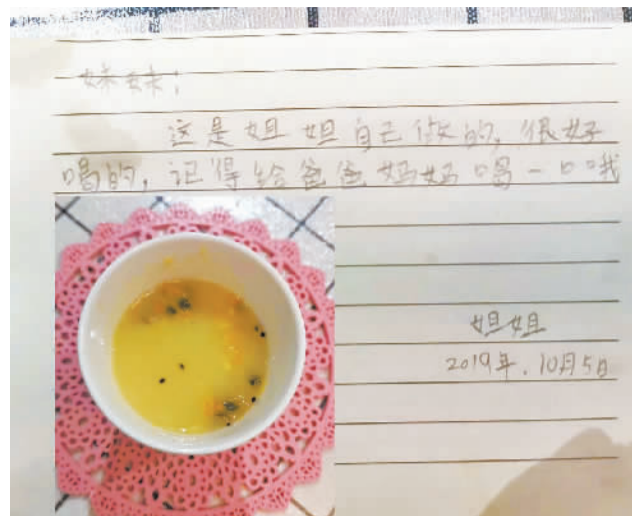 妹妹：
这是姐姐自己做的，很好
喝的，记得给爸爸妈妈喝一口哦
姐姐
2019年.10月5日